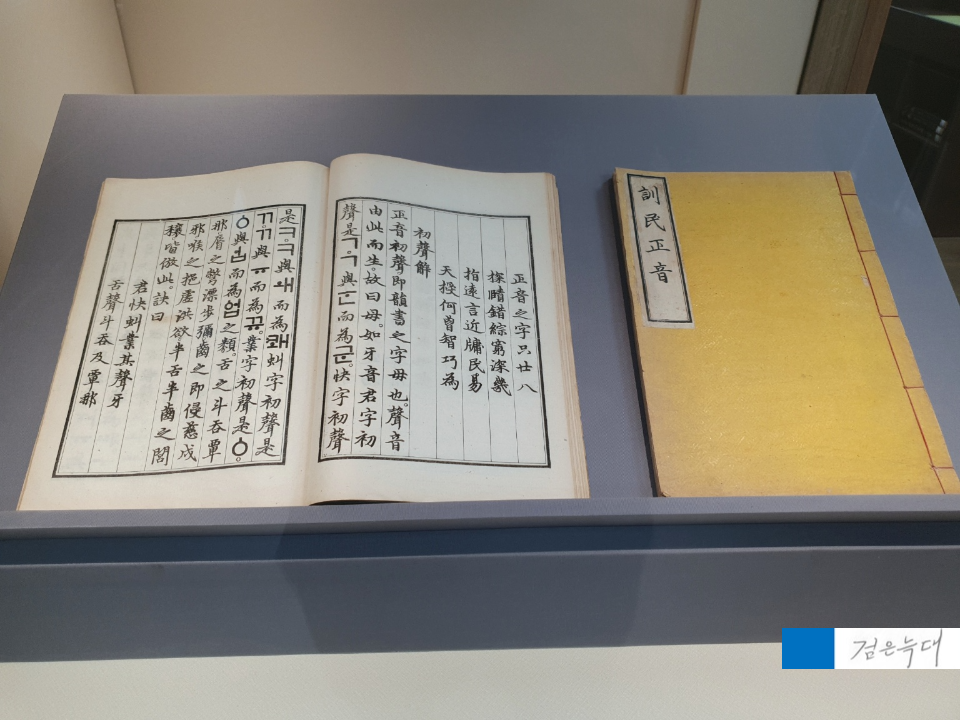 正音之字只廿八
探賾錯綜窮深幾
指遠言近牖民易
天授何曾智巧為
初聲解
正音初聲即韻書之字母也。聲音
由此而生。故曰母。如牙音君字初
聲是ㄱ。ㄱ與ᅟᅮᆫ而為군。快字初聲
是ㅋ。ㅋ與ㅙ而為쾌。虯字初聲是
ㄲ。ㄲ與ㅠ而為뀨。業字初聲是ㆁ。
ㆁ與ᅟᅥᆸ而為ᅌᅥᆸ之類。舌之斗呑覃
那脣之彆漂步彌齒之即侵慈戌
邪喉之挹虛洪欲半舌半齒之閭
穰皆倣此。訣曰
君快虯業其聲牙
舌聲斗呑及覃那
訓民正音
검은늑대